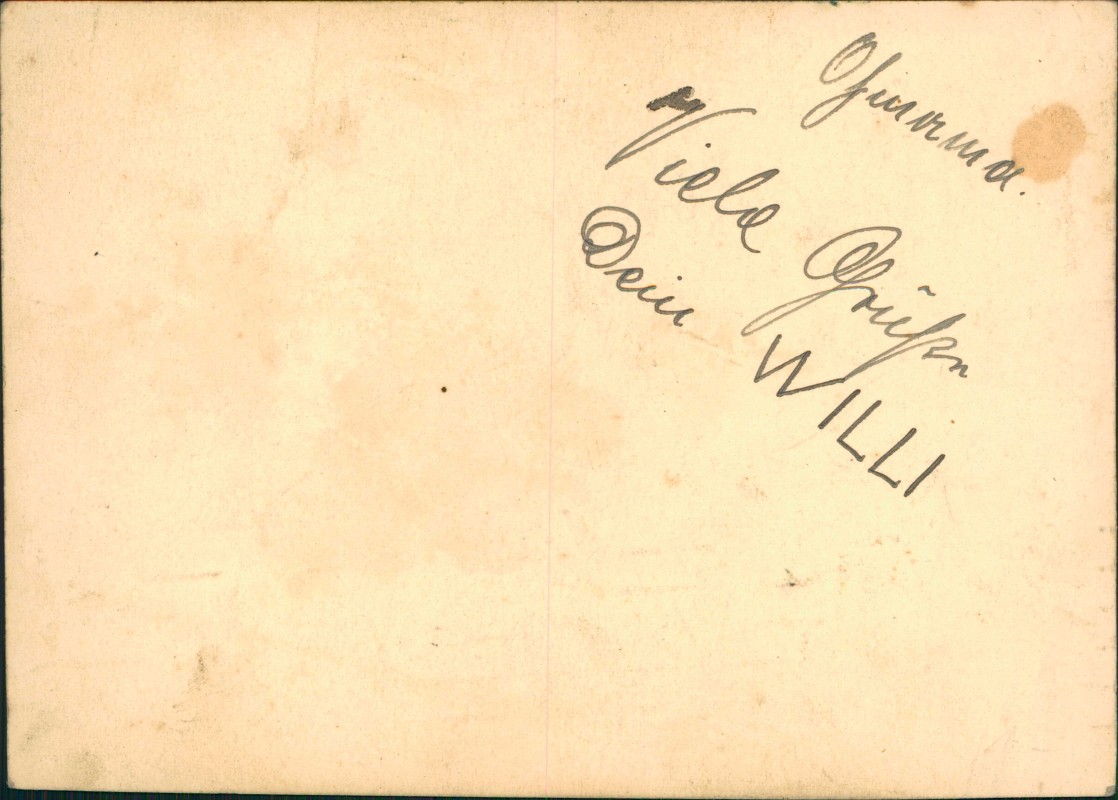 Viele Grüße
Dein WILLI